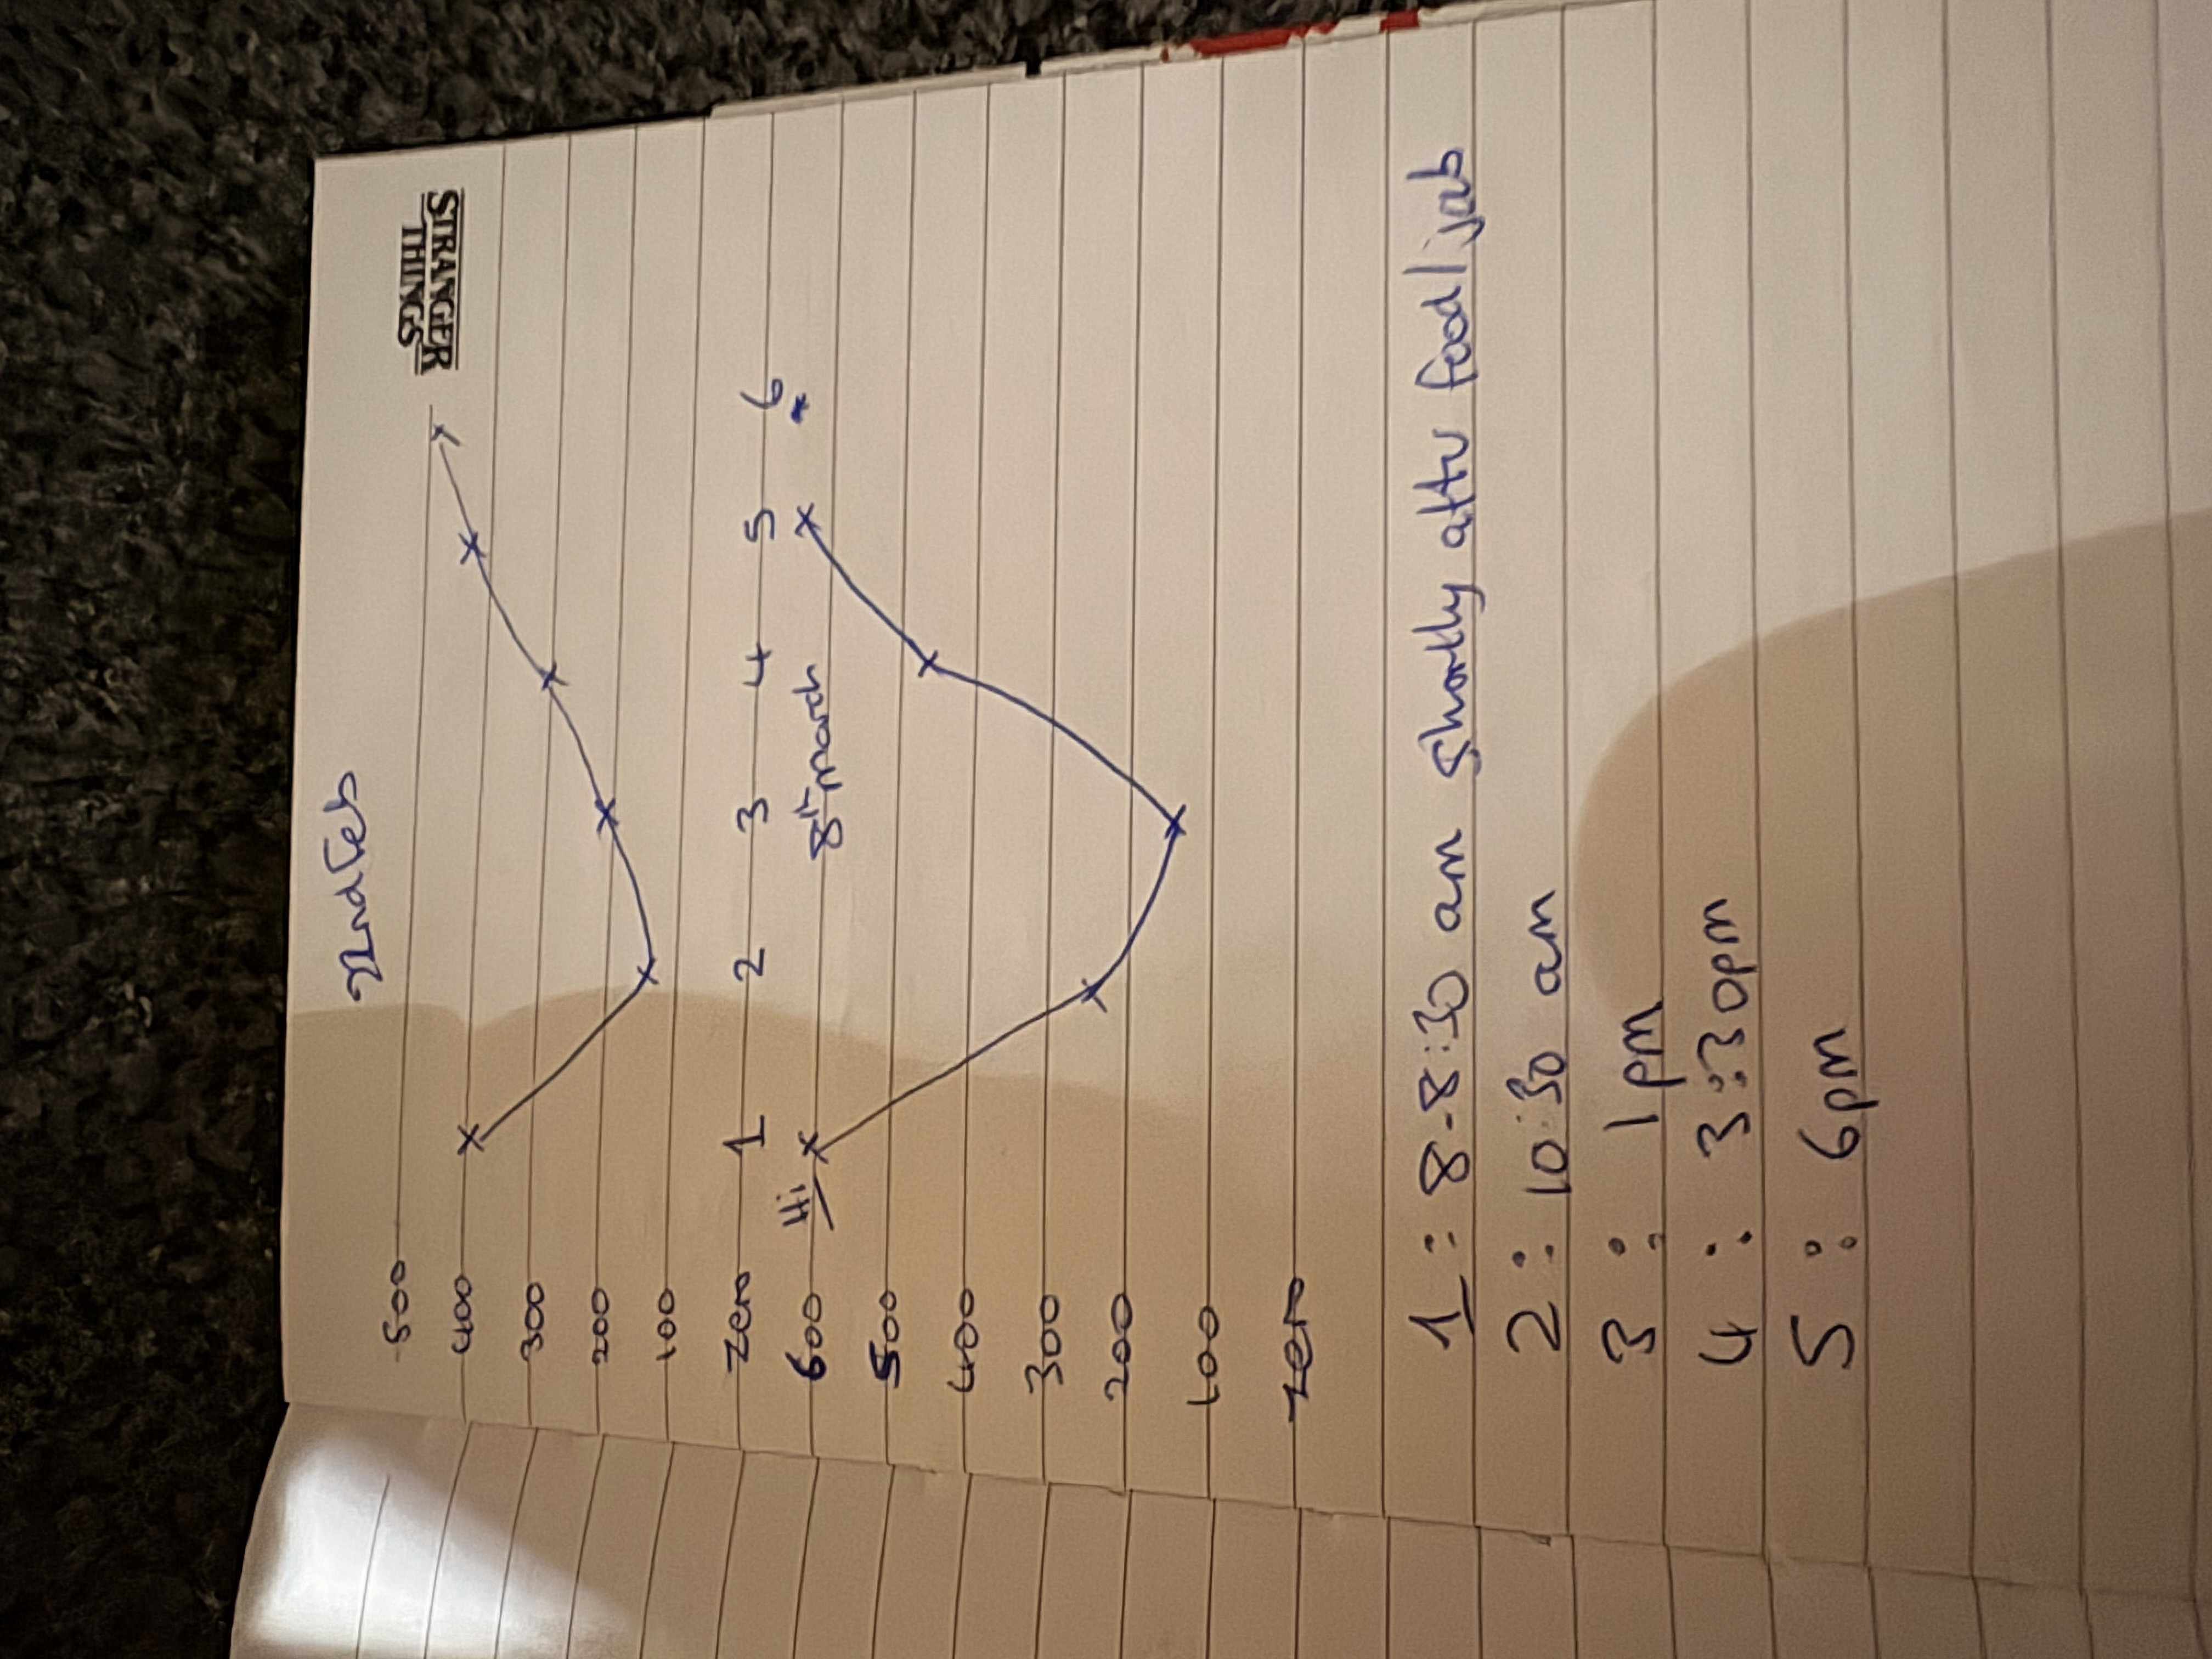 STRANGER
THINGS
22nd Feb
500
400
300
200
100
Zero 1 2 3 4 5 6
Hi 8th march
600
500
400
300
200
100
zero
1 : 8-8:30 am shortly after food/jab
2 : 10:30 am
3 : 1pm
4 : 3:30pm
5 : 6pm